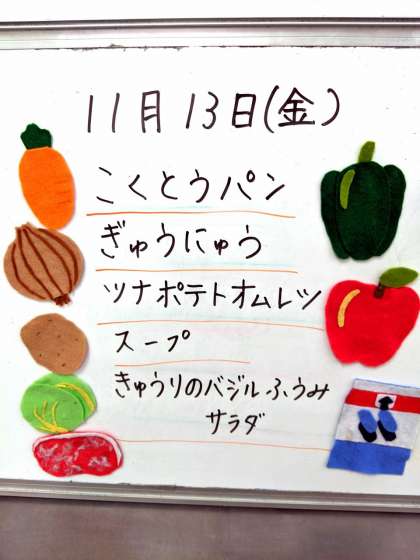 11月 13日(金)
こくとうパン
ぎゅうにゅう
ツナポテトオムレツ
スープ
きゅうりのバジルふうみ
サラダ